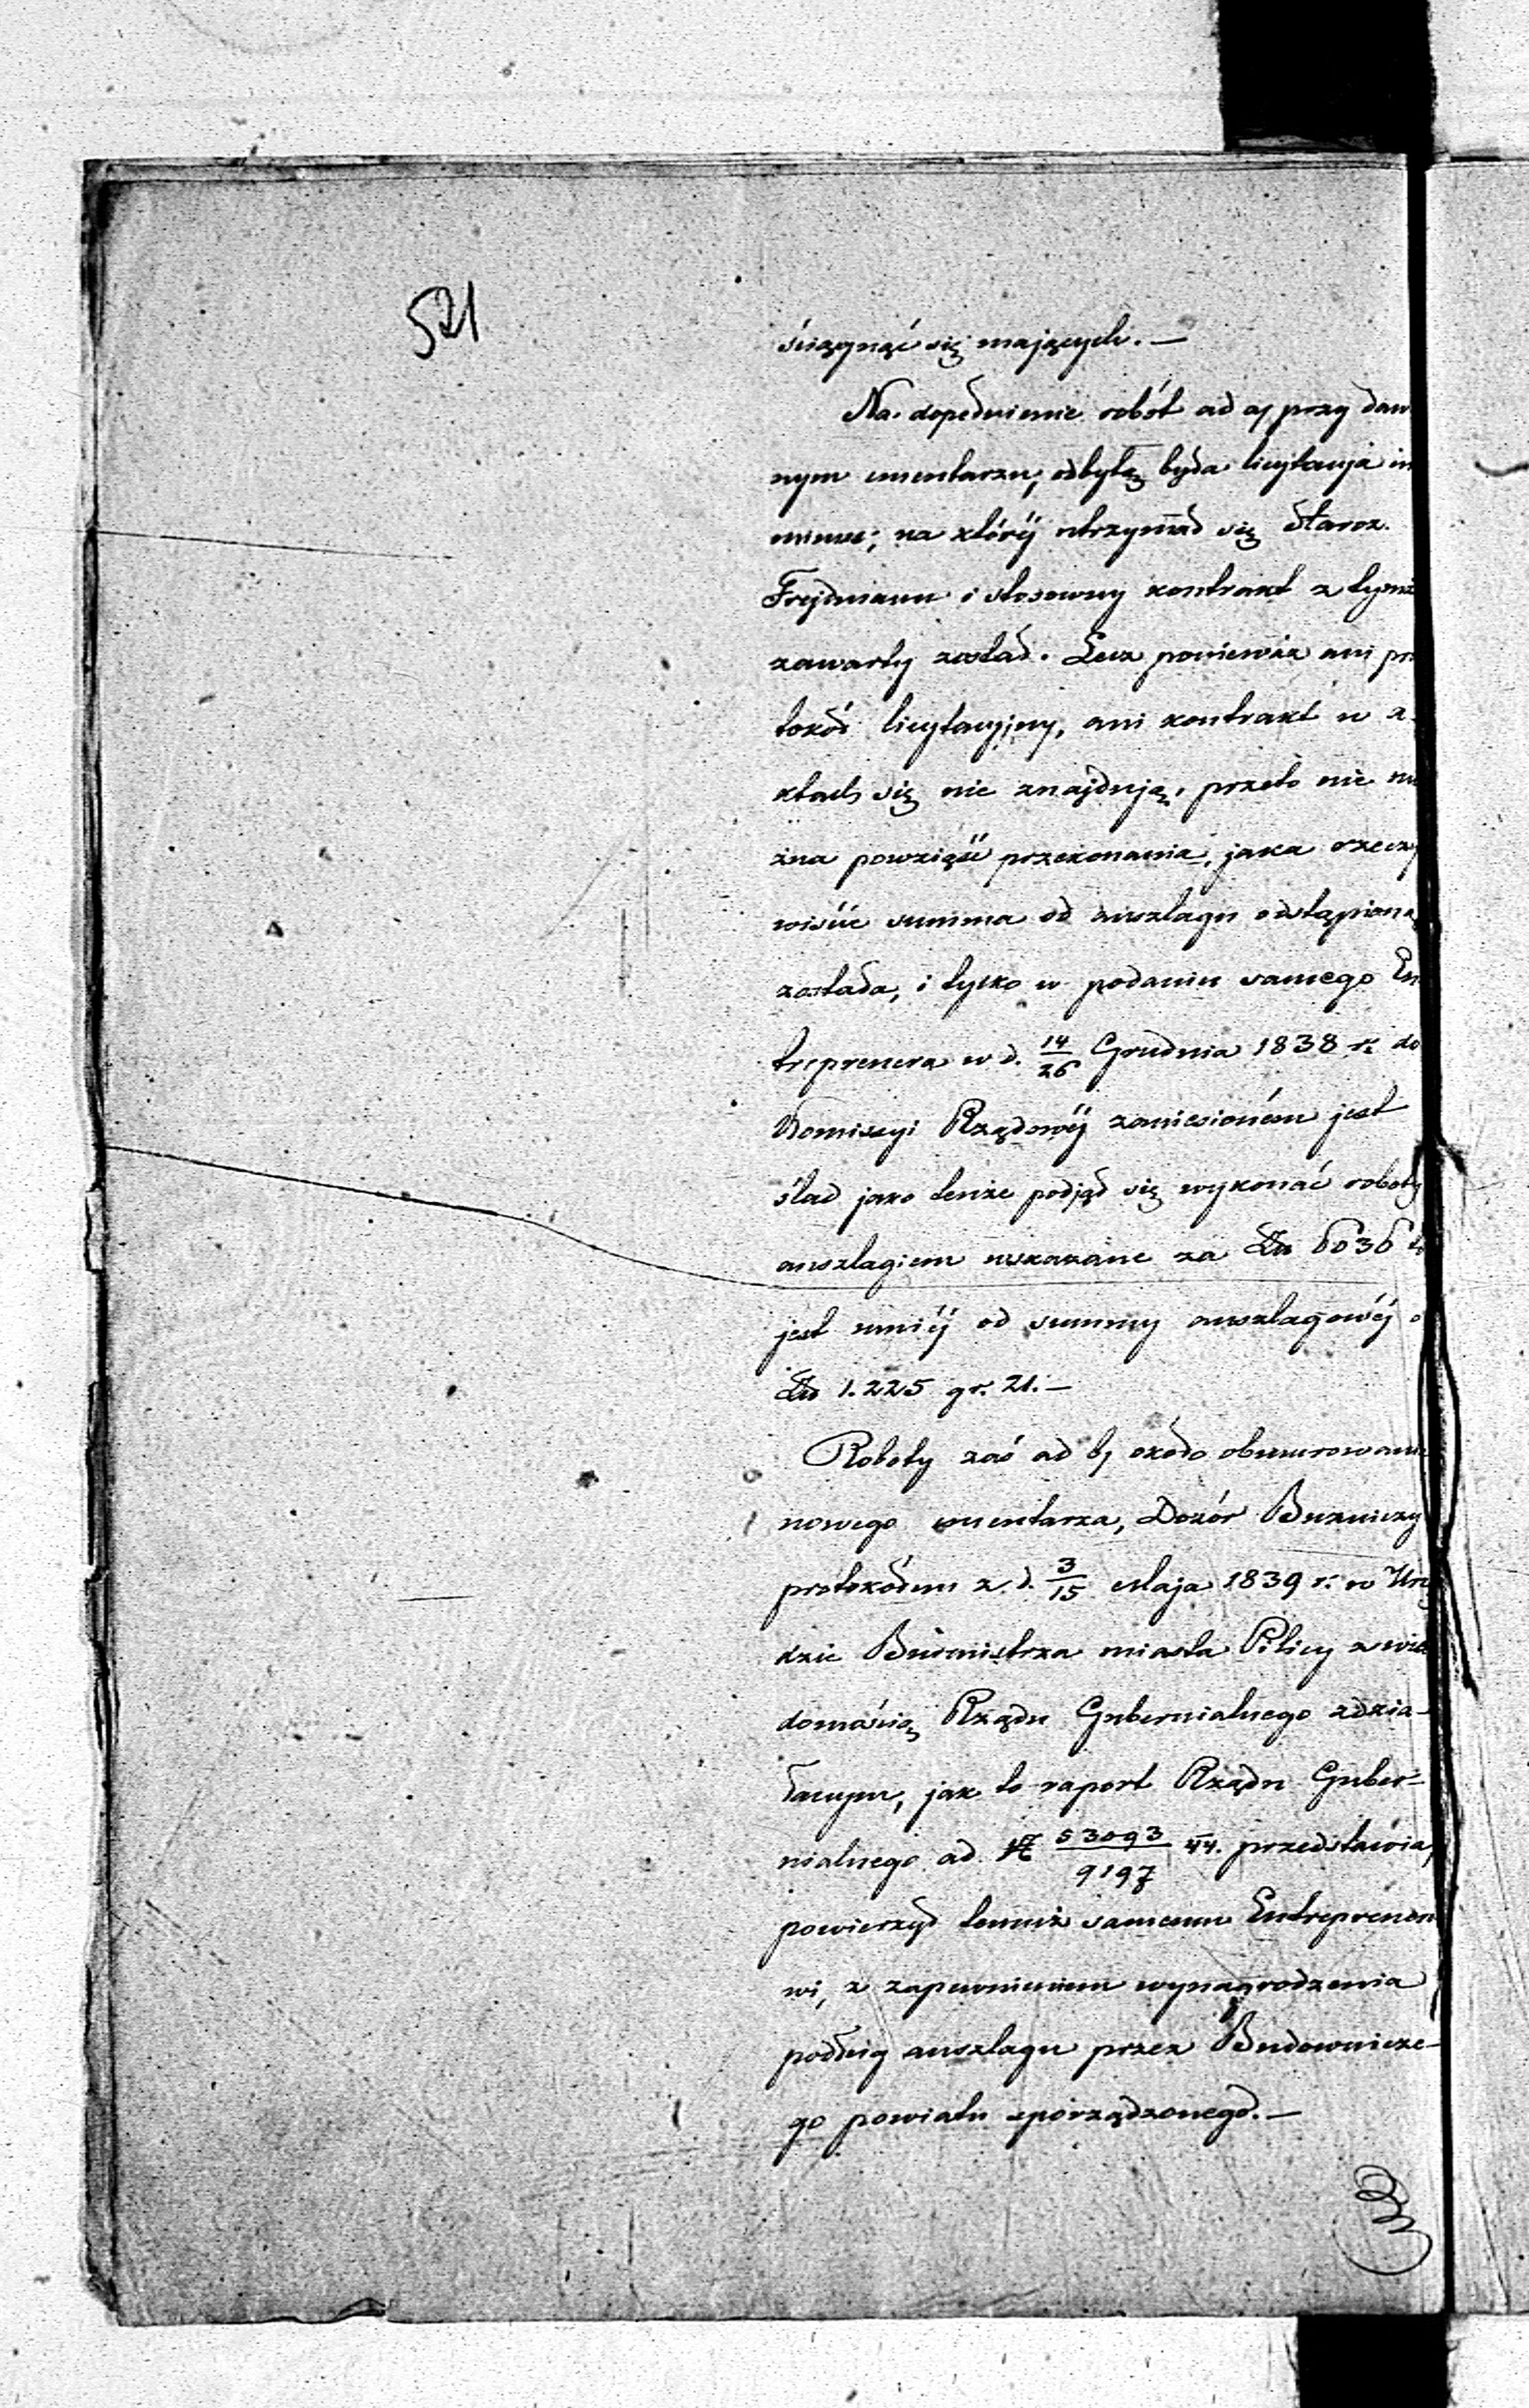 521
ściągnąć się mających. —
Na dopełnienie robót ad a/ przy daw
nym cmentarzu, odbytą była licytacja in
minus; na którėj utrzymał się Staroz.
Frejdmann i stosowny kontrakt z tymż
zawarty został. Lecz ponieważ ani pro
tokół licytacyjny, ani kontrakt w a-
ktach się nie znajdują, przeto nie mo
żna powziąść przekonania, jaka rzeczy
wiście summa od anszlagu odstąpioną
została, i tylko w podaniu samego En
treprenera w d. 14/26 Grudnia 1838 r. do
Komissyi Rządowėj zaniesioném jest
ślad jako tenże podjął się wykonać roboty
anszlagiem wskazane za Złp 6036 t
jest mniėj od summy anszlagowėj o
Złp 1.225 gr. 21. —
Roboty zaś ad b/ około obmurowania
nowego cmentarza, Dozór Bużniczy
protokółem z d. 3/15 Maja 1839 r. w Urzę
dzie Burmistrza miasta Pilicy z wia
domością Rządu Gubernialnego zdzia-
łanym, jak to raport Rządu Guber-
nialnego ad N 53093/9197 44. przedstawia,
powierzył temuż samemu Entreprenero
wi, z zapewnieniem wynagrodzenia
podług anszlagu przez Budownicze-
go powiatu sporządzonego. —